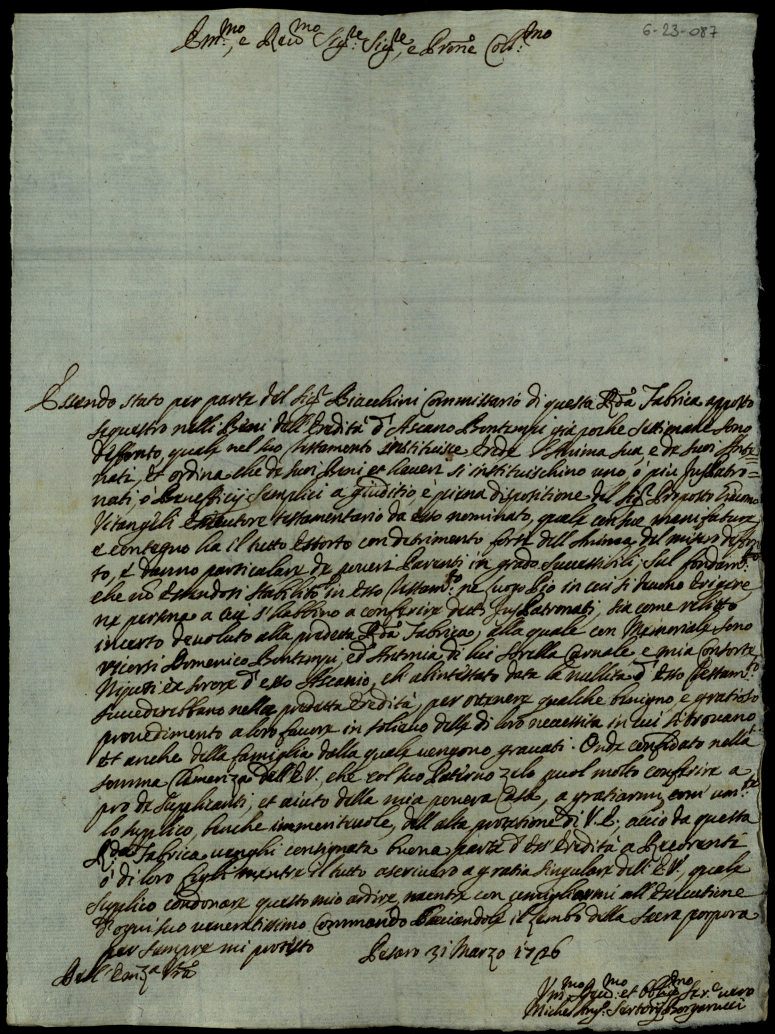 6-23-087
Em.mo, e Rev.mo Sig.re Sig.re, e Prone Coll.mo
Essendo stato per parte del Sig.r Biacchini Commissario di questa R.da Fabrica apposto
sequestro nelli Beni dell'Eredità d'Ascanio Bontempi già poche settimane sono
defonto, quale nel suo testamento instituisce Erede l'Anima sua, e de suoi
nati, et ordina che de suoi Beni et haveri si instituischino uno, ò più Juspatro=
nati, o Beneficij semplici a giuditio, e piena dispositione del Sig.r Preposto
Vitangeli Esecutore testamentario da esso nominato, quale con sue manifatture
e contegno ha il tutto estorto con detrimento forte dell'Anima del misero defon
to, e danno particolare de poveri Parenti in grado successibili; sul fondam.to
che nò essendosi stabilito in esso Testam.to ne luogo Pio in cui si deveno erigere,
ne persona a cui s'habbino a conferire detti Juspatronati, sia come relitto
incerto devoluto alla predetta R.da Fabrica, alla quale con Memoriale sono
ricorsi Domenico Bontempi, ed Antonia di lui sorella Carnale e mia Consorte
Nipoti ex sorore d'esso Ascanio, ch'ab intestato data la nullità d'esso Testam.to
succederebbano nella predetta Eredità, per ottenere qualche benigno e gratioso
provedimento a loro favore in solievo delle di loro necessità in cui si trovano
et anche della famiglia dalla quale vengono gravati. Onde confidato nella
somma Clemenza dell'E.V., che col suo zelo puol molto conferire a
pro de supplicanti, et aiuto della mia povera Casa, a gratiarmi, com' um.te
lo supplico, benche immeritevole, dell'alta protetione di V.E., acciò da questa
R.da Fabrica venghi consignata buona parte d'essa Eredità a Ricorrenti
ò di loro figli mentre il tutto ascriverò a gratia singulare dell'E.V., quale
supplico condonare questo mio ardire, mentre con all'esecutione
d'ogni suo veneratissimo Commando baciandole il lembo della sacra porpora
per sempre mi protesto Pesaro 31 Marzo 1726
Dell'Em.za V.ra
Um.mo Dev.mo et Oblig.mo Ser.re vero
Michel Ang.o Sartorij Borgarucci